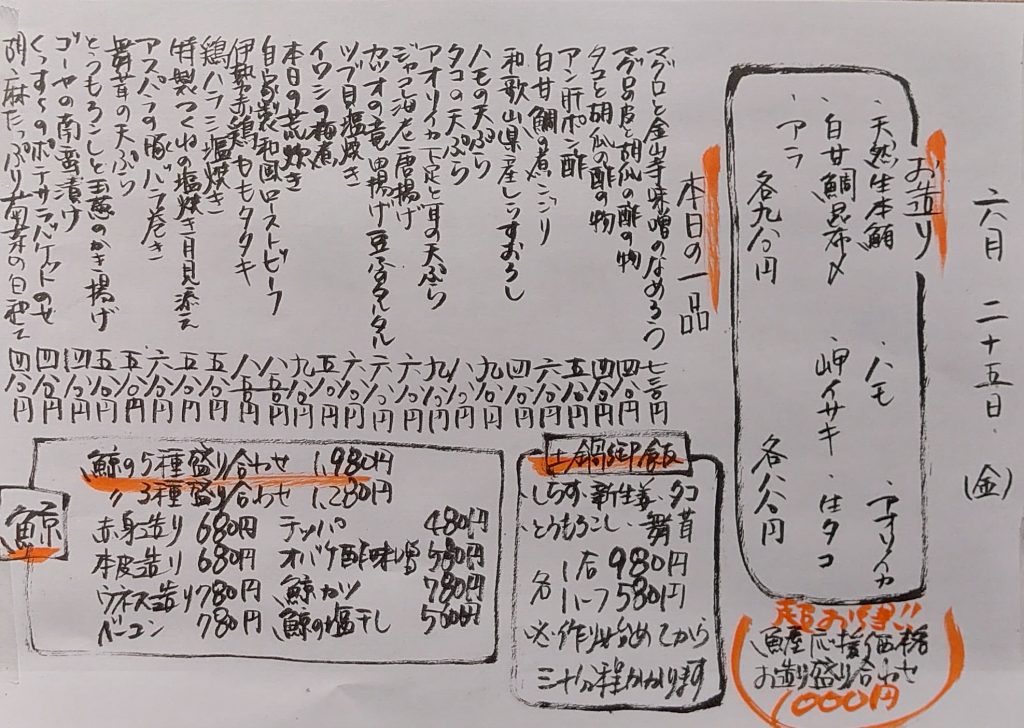 六月 二十五日(金)
お造り
・天然生本鮪 ・ハモ ・アオリイカ
・白甘鯛昆布〆 ・岬イサキ ・生タコ
・アラ
各九八〇円 各八八〇円
超お得!!
魚産応援価格
お造り盛り合わせ
1000円
本日の一品
マグロと金山寺味噌のなめろう 七三〇円
マグロの皮と胡瓜の酢の物 四八〇円
タコと胡瓜の酢の物 四八〇円
アン肝ポン酢 五八〇円
白甘鯛の煮こごり 六八〇円
和歌山県産しらすおろし 四八〇円
ハモの天ぷら 九八〇円
タコの天ぷら 八八〇円
アオリイカ下足と耳の天ぷら 九八〇円
ジャコ海老唐揚げ 六八〇円
カツオの竜田揚げ 豆腐タルタル 六八〇円
ツブ貝塩焼き 六八〇円
イワシの梅煮 五八〇円
本日の荒炊き 九八〇円
自家製和風ローストビーフ 八八〇円
伊勢赤鶏ももタタキ 八五〇円
鶏ハラミ塩焼き 五八〇円
特製つくねの塩焼き 月見添え 五八〇円
アスパラの豚バラ巻き 六八〇円
舞茸の天ぷら 五八〇円
とうもろこしと玉葱のかき揚げ 五八〇円
ゴーヤの南蛮漬け 四八〇円
くんせいのポテサラ バケットのせ 四八〇円
胡麻たっぷり 四八〇円
土鍋御飯
・しらす・新生姜・タコ
・とうもろこし・舞茸
各 1合 980円
ハーフ 580円
※作り始めてから
三十分程かかります
鯨
鯨の5種盛り合わせ 1,980円
〃3種盛り合わせ 1,280円
赤身造り 680円 テッパ 480円
本皮造り 680円 オバケ酢味噌 580円
ウネス造り 780円 鯨カツ 780円
ベーコン 780円 鯨の塩干し 500円